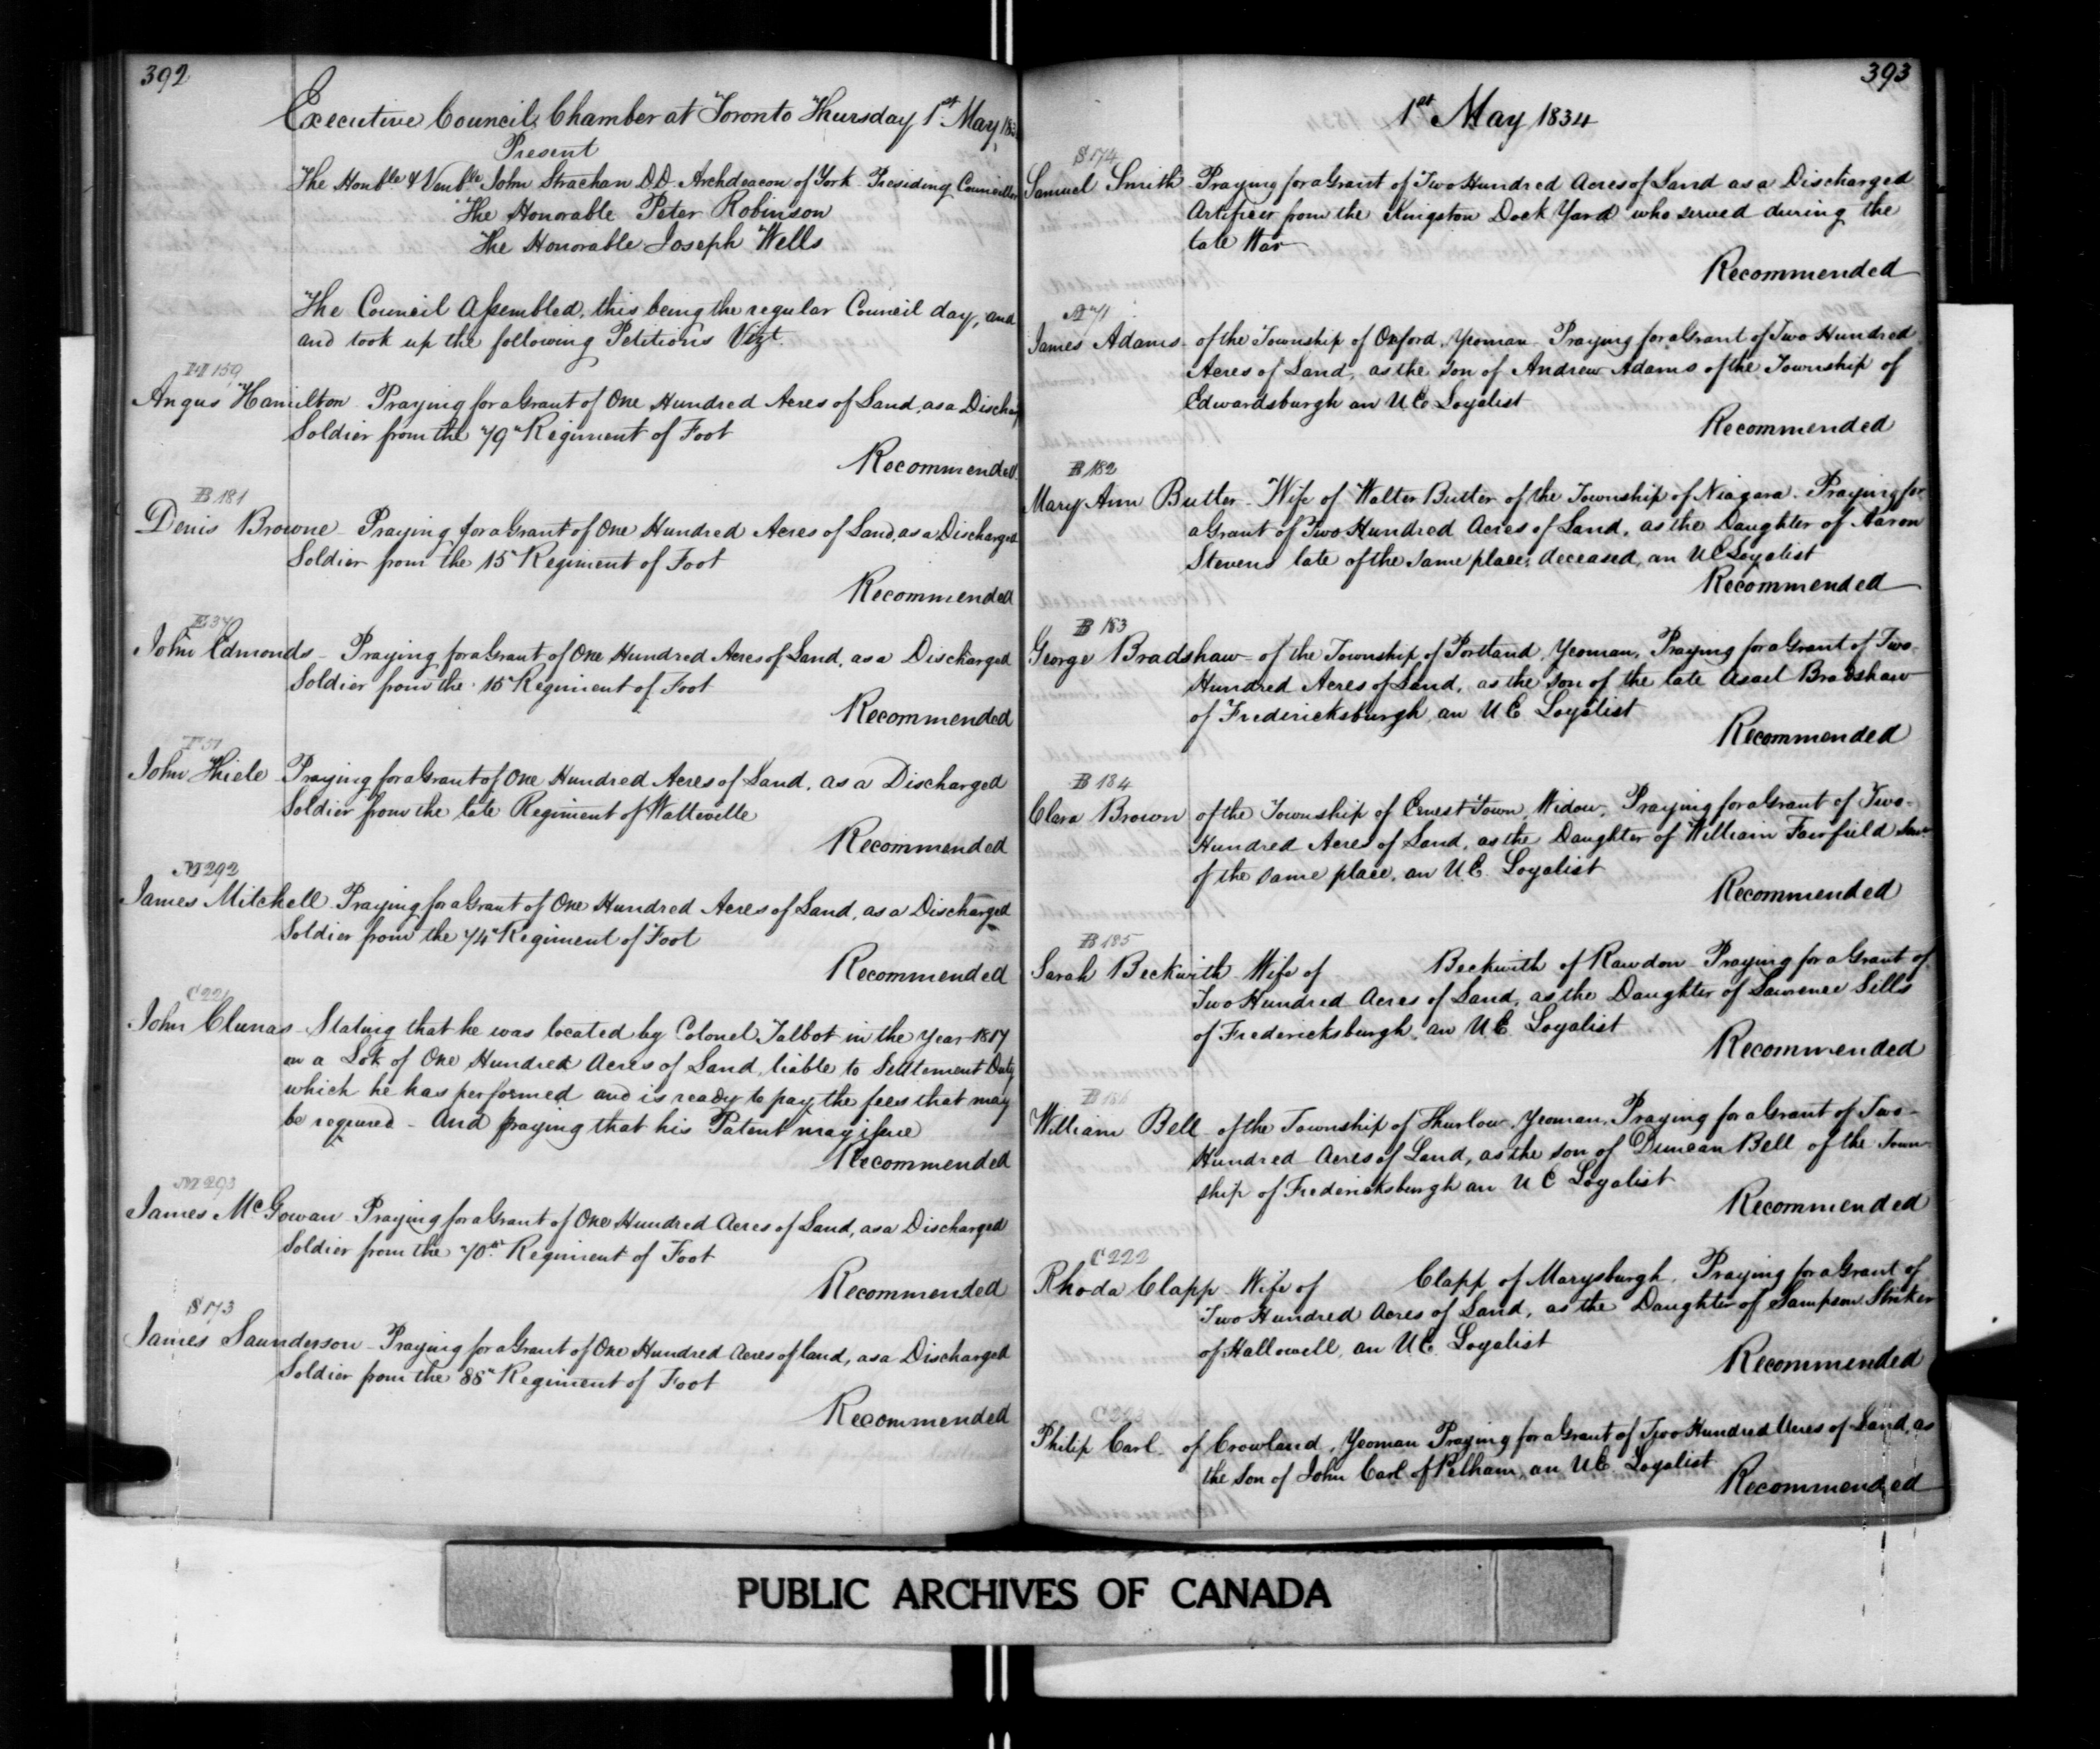 392
Executive Council Chamber at Toronto Thursday 1st May 183
Present
The Honble & Venble John Strachan D.D. Archdeacon of York Presiding Councillor
The Honorable Peter Robinson
The Honorable Joseph Wells
The Council Assembled, this being the regular Council day, and
and took up the following Petitions Vizt.
H 159
Angus Hamilton Praying for a Grant of One Hundred Acres of Land, as a Discharg
Soldier from the 79th Regiment of Foot
Recommended
B 181
Denis Browne Praying for a Grant of One Hundred Acres of Land, as a Discharged
Soldier from the 15th Regiment of Foot
Recommended
E 37
John Edmonds - Praying for a Grant of One Hundred Acres of Land, as a Discharged
Soldier from the 15th Regiment of Foot
Recommended
T 51
John Thiele Praying for a Grant of One Hundred Acres of Land, as a Discharged
Soldier from the late Regiment of Watteville
Recommended
M 292
James Mitchell Praying for a Grant of One Hundred Acres of Land, as a Discharged
Soldier from the 74th Regiment of Foot
Recommended
C 221
John Clunas - Stating that he was located by Colonel Talbot in the Year 1817
on a Lot of One Hundred Acres of Land, liable to Settlement Duty
which he has performed and is ready to pay the fees that may
be required - And praying that his Patent may issue
Recommended
M 293
James McGowan - Praying for a Grant of One Hundred Acres of Land, as a Discharged
Soldier from the 70th Regiment of Foot
Recommended
S 173
James Saunderson - Praying for a Grant of One Hundred Acres of land, as a Discharged
Soldier from the 88th Regiment of Foot
Recommended
393
1st May 1834
S 174
Samuel Smith - Praying for a Grant of Two Hundred Acres of Land as a Discharged
Artificer from the Kingston Dock Yard who served during the
late War
Recommended
A 71
James Adams - of the Township of Oxford, Yeoman - Praying for a Grant of Two Hundred
Acres of Land, as the Son of Andrew Adams of the Township of
Edwardsburgh an U.E. Loyalist
Recommended
B 182
Mary Ann Butler - Wife of Walter Butler of the Township of Niagara. Praying for
a Grant of Two Hundred Acres of Land, as the Daughter of Aaron
Stevens late of the same place, deceased, an U E Loyalist
Recommended
B 183
George Bradshaw - of the Township of Portland, Yeoman, Praying for a Grant of Two
Hundred Acres of Land, as the Son of the late Asael Bradshaw
of Fredericksburgh, an U.E. Loyalist
Recommended
B 184
Clara Brown of the Township of Ernest Town, Widow, Praying for a Grant of Two
Hundred Acres of Land, as the Daughter of William Fairfield Senr
of the same place, an U.E. Loyalist
Recommended
B 185
Sarah Beckwith Wife of Beckwith of Rawdon Praying for a Grant of
Two Hundred Acres of Land, as the Daughter of Lawrence Sills
of Fredericksburgh, an U.E. Loyalist
Recommended
B 186
William Bell - of the Township of Thurlow, Yeoman, Praying for a Grant of Two
Hundred Acres of Land, as the son of Duncan Bell of the Town-
ship of Fredericksburgh an U E Loyalist
Recommended
C 222
Rhoda Clapp Wife of Clapp of Marysburgh, Praying for a Grant of
Two Hundred Acres of Land, as the Daughter of Sampson Striker
of Hallowell, an U.E. Loyalist
Recommended
C 223
Philip Carl - of Crowland, Yeoman Praying for a Grant of Two Hundred Acres of Land, as
the Son of John Carl of Pelham, an U.E. Loyalist
Recommended
PUBLIC ARCHIVES OF CANADA